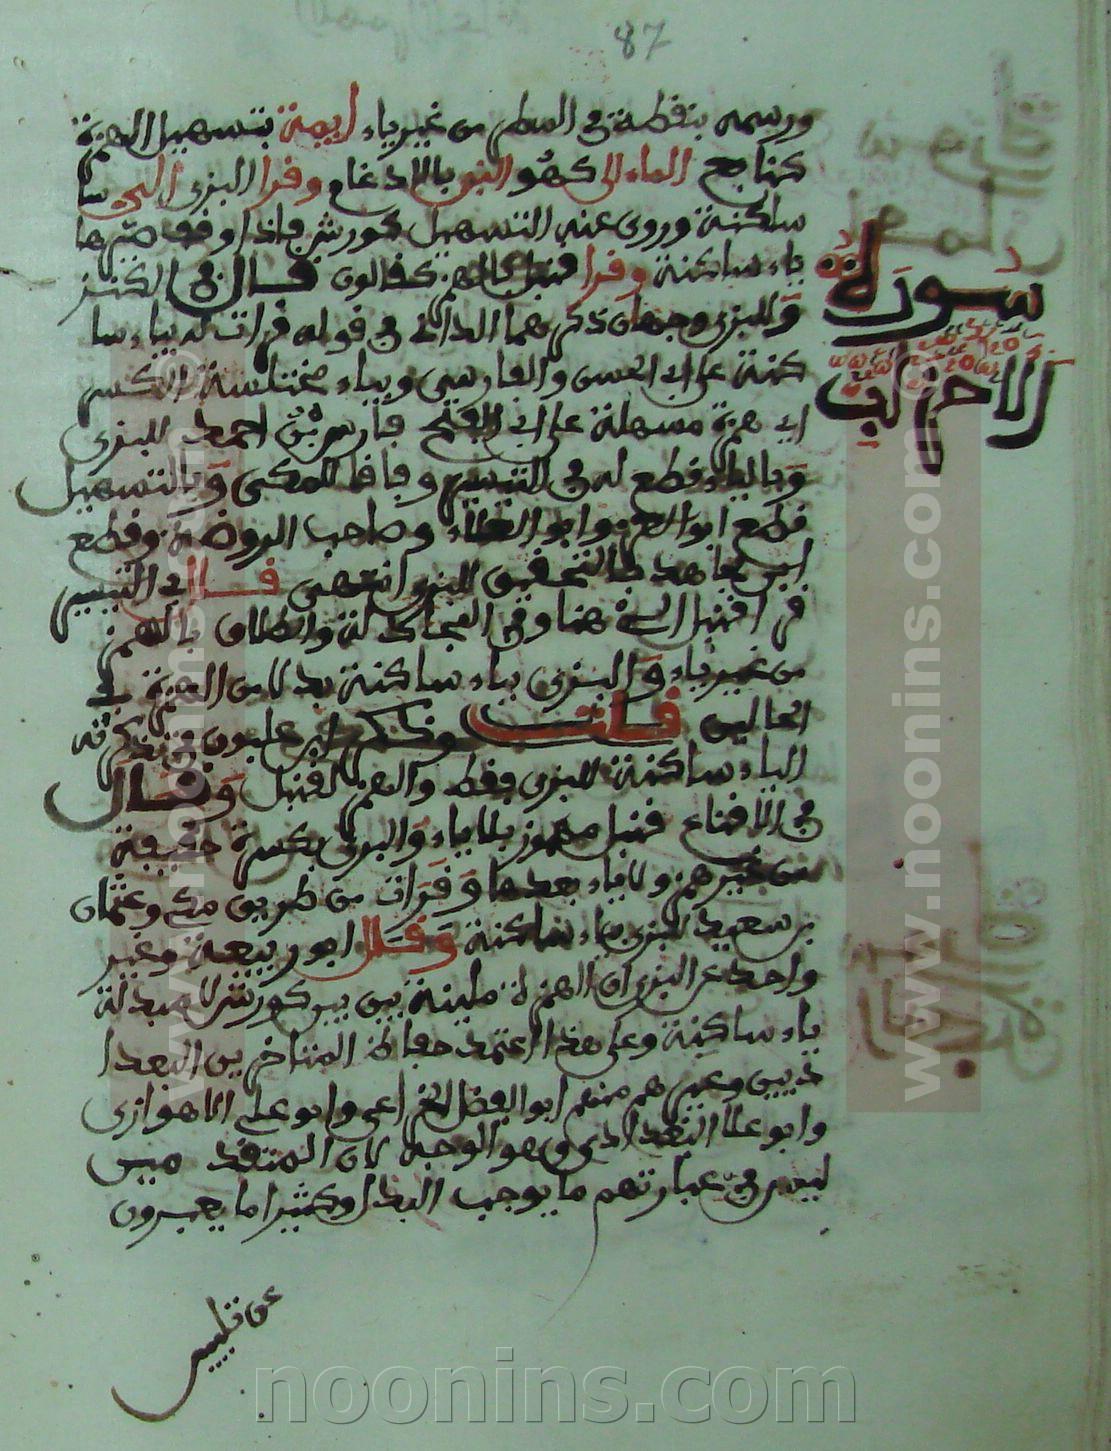 87
ورسمه بنقطة في السطر من غير ياء ايمة بتسهيل الهمزة
كنافع الماء الى كهو النبو بالادغام وقرا البزي الـى بيا
ساكنة وروى عنه التسهيل كورش فاذا وقف صيرها
ياء ساكنة وقرا قنبل بالهمز كقالون قال في الكنز
وللبزي وجهان ذكرهما الداني في قوله قرات له بياء سا
كنة على ابي الحسن والفارسي وبياء مختلسة الكسر
اي همزة مسهلة على ابي الفتح فارس بن احمد للبزي
وبالياء قطع له في التيسير وفاقا للمكي وبالتسهيل
قطع ابو العز وابو العلاء وصاحب الروضة وقطع
ابن مجاهد بالتحقيق للبزي انتهى قال في التيسير
قرا قنبل الـى هنا وفي المجادلة والطلاق بالهمز
من غير ياء والبزي بياء ساكنة بدلا من الهمزة في
الحالين قلت وذكر ابن غلبون في تذكرته
الياء ساكنة للبزي فقط والهمز لقنبل وقال
في الاقناع قنبل مهموز بلا ياء والبزي بكسرة خفيفة
من غير همز ولا ياء بعدها وقرات من طريق مكي وعثمان
بن سعيد للبزي بياء ساكنة وقال ابو ربيعة وغير
واحد عن البزي ان الهمزة ملينة بين بين كورش لا مبدلة
ياء ساكنة وعلى هذا اعتمد حفاظ المتاخرين البغدا
ديين وغيرهم منهم ابو الفضل الخزاعي وابو علي الاهوازي
وابو علي البغدادي وهو الوجه لان المتقدمين
ليس في عبارتهم ما يوجب البدل وكثيرا ما يعبرون
عن تليين
سورة
الاحزاب
www.noonins.com
www.noonins.com
noonins.com